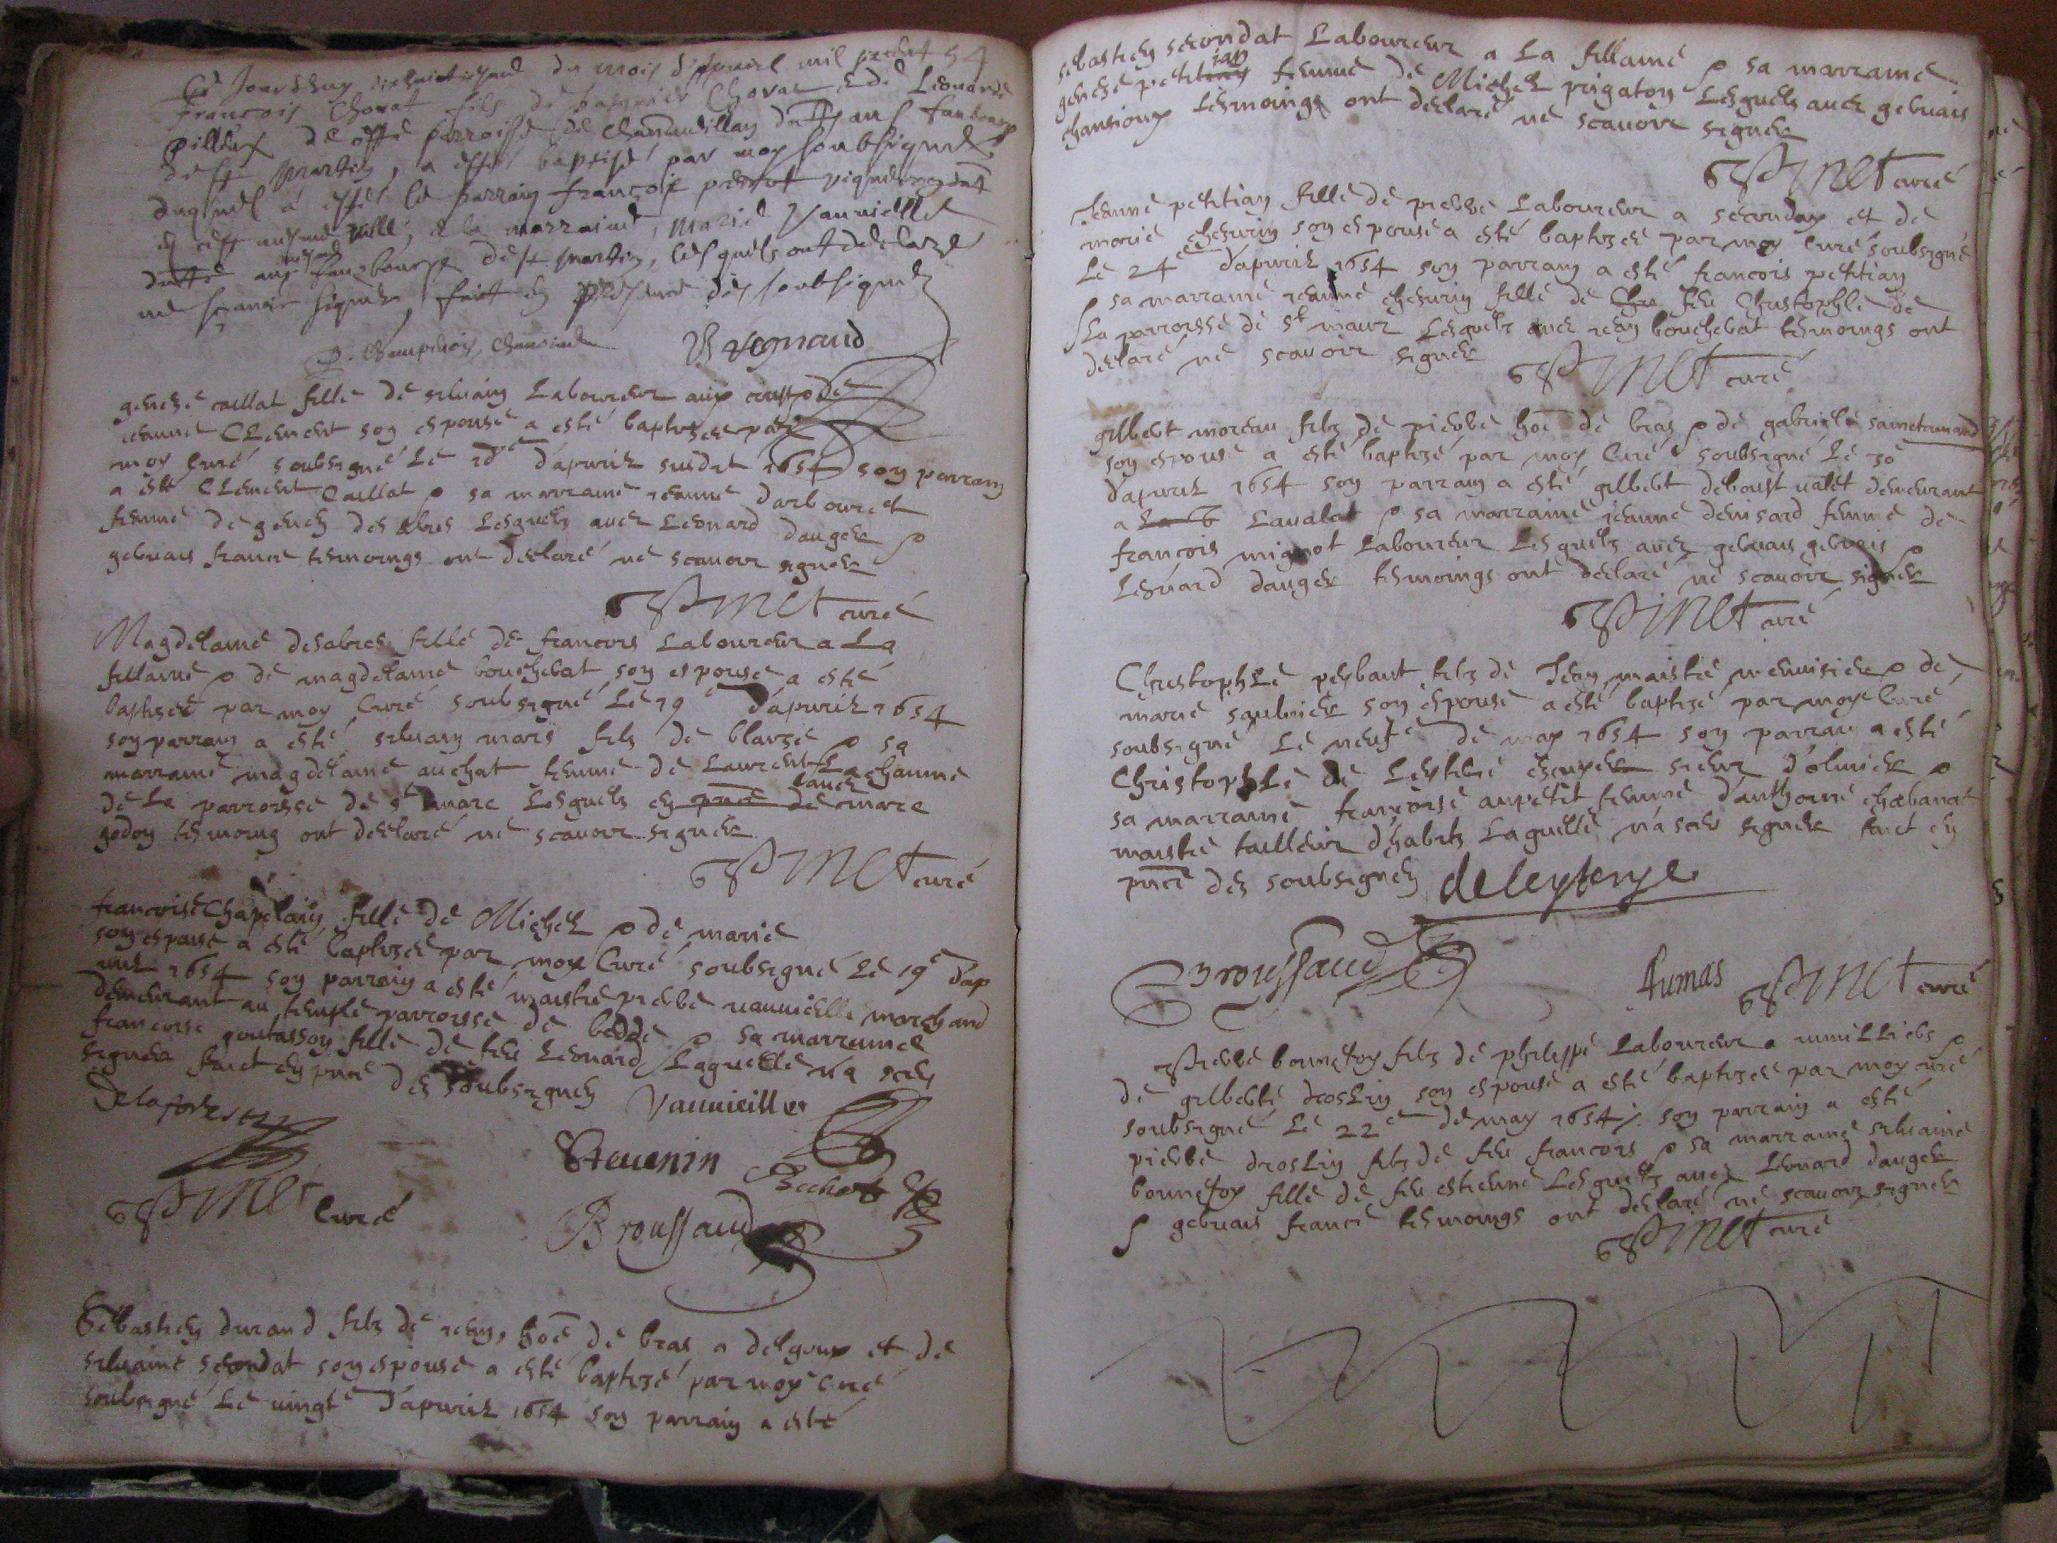 Ce Jourdhuy du mois d'Apuril mil 54
francois Chorat fils de Chorat & de Leonarde
de cette parroisse de
de st martin, a esté baptisé par moy soubsigné
duquel a esté le parrain françois
en ceste ville, & la marraine, Marie Vauvielle
aux faux bourgs de st martin, lesquels ont declaré
ne scavoir signer, fait en presence des soubsignez
Regnaud
geneze caillat fille de siluain Laboureur aux & de
ieanne Clement son espouse a esté baptizee par
moy Curé soubsigné Le d'apuril susdit 1654 son parrain
a esté Clement Caillat & sa marraine ieanne darbouret
femme de des Lesquels auec Leonard dauger &
geruais france tesmoings ont declaré ne scauoir signer
Pinet curé
Magdelaine desabres fille de francois Laboureur a La
fillaine & de magdelaine boucherat son espouse a esté
baptizee par moy Curé soubsigné Le 19e d'apuril 1654
son parrain a esté siluain mars filz de blaize & sa
marraine magdelaine auchat femme de Laurent Lachaume
de La parroisse de st marc Lesquels en pnce auec de marc
godon tesmoing ont declaré ne scauoir signer
Pinet curé
francoise Chapelain fille de Michel & de marie
son espouse a esté baptizee par moy Curé soubsigné Le 19e d'ap
uril 1654 son parrain a esté maistre pierre vauuielle marchand
demeurant au temple parroisse de & sa marraine
francoise goutasson fille de feu Leonard Laquelle n'a sceu
signer faict en pnce des soubsignez Vauvieille
Delaforest
Steuenin
Pinet Curé
Broussaud
Sebastien durand filz de iean, hoe de bras a delgoux et de
siluaine secondat son espouse a esté baptizé par moy Curé
soubsigné Le uingte d'apuril 1654 son parrain a esté
sebastien secondat Laboureur a La fillaine & sa marraine
geneze petitian femme de Michel prigaton Lesquels auec geruais
chansioux tesmoings ont declaré ne scauoir signer
Pinet curé
Jeanne petitian fille de pierre Laboureur a secondax et de
marie chezurin son espouse a esté baptizee par moy Curé soubsigné
Le 24e d'apuril 1654 son parrain a esté francois petitian
& sa marraine ieanne chezurin fille de feu Christophle de
La parroisse de st maur Lesquels auec iean boucherat tesmoings ont
declaré ne scauoir signer
Pinet curé
gilbert moreau filz de pierre hoe de bras & de gabrielle
son espouse a esté baptizé par moy Curé soubsigné Le 30
d'apuril 1654 son parrain a esté gilbert deboust ualet demeurant
a Laualat & sa marraine ieanne demsard femme de
francois mignot Laboureur Lesquels auec geruais geruais &
Leonard dauger tesmoings ont declaré ne scauoir signer
Pinet curé
Christophle peybaut filz de Jean maistre menuisier & de
marie saulnier son espouse a esté baptizé par moy Curé
soubsigné Le neufe de may 1654 son parrain a esté
Christophle de Leyterie escuyer sieur d'olmier &
sa marraine francoise aupetit femme d'anthoine chabanat
maistre tailleur d'habits Laquelle n'a sceu signer faict en
pnce des soubsignez deleyterye
Broussaud
Aumas Pinet curé
Pierre bonnefoy filz de philippe Laboureur a &
de gilberte droslin son espouse a esté baptizee par moy curé
soubsigné Le 22e de may 1654. son parrain a esté
pierre droslin filz de feu francois & sa marraine siluaine
bonnefoy fille de feu estienne Lesquels auec Leonard dauger
& geruais france tesmoings ont declaré ne scauoir signer
Pinet curé